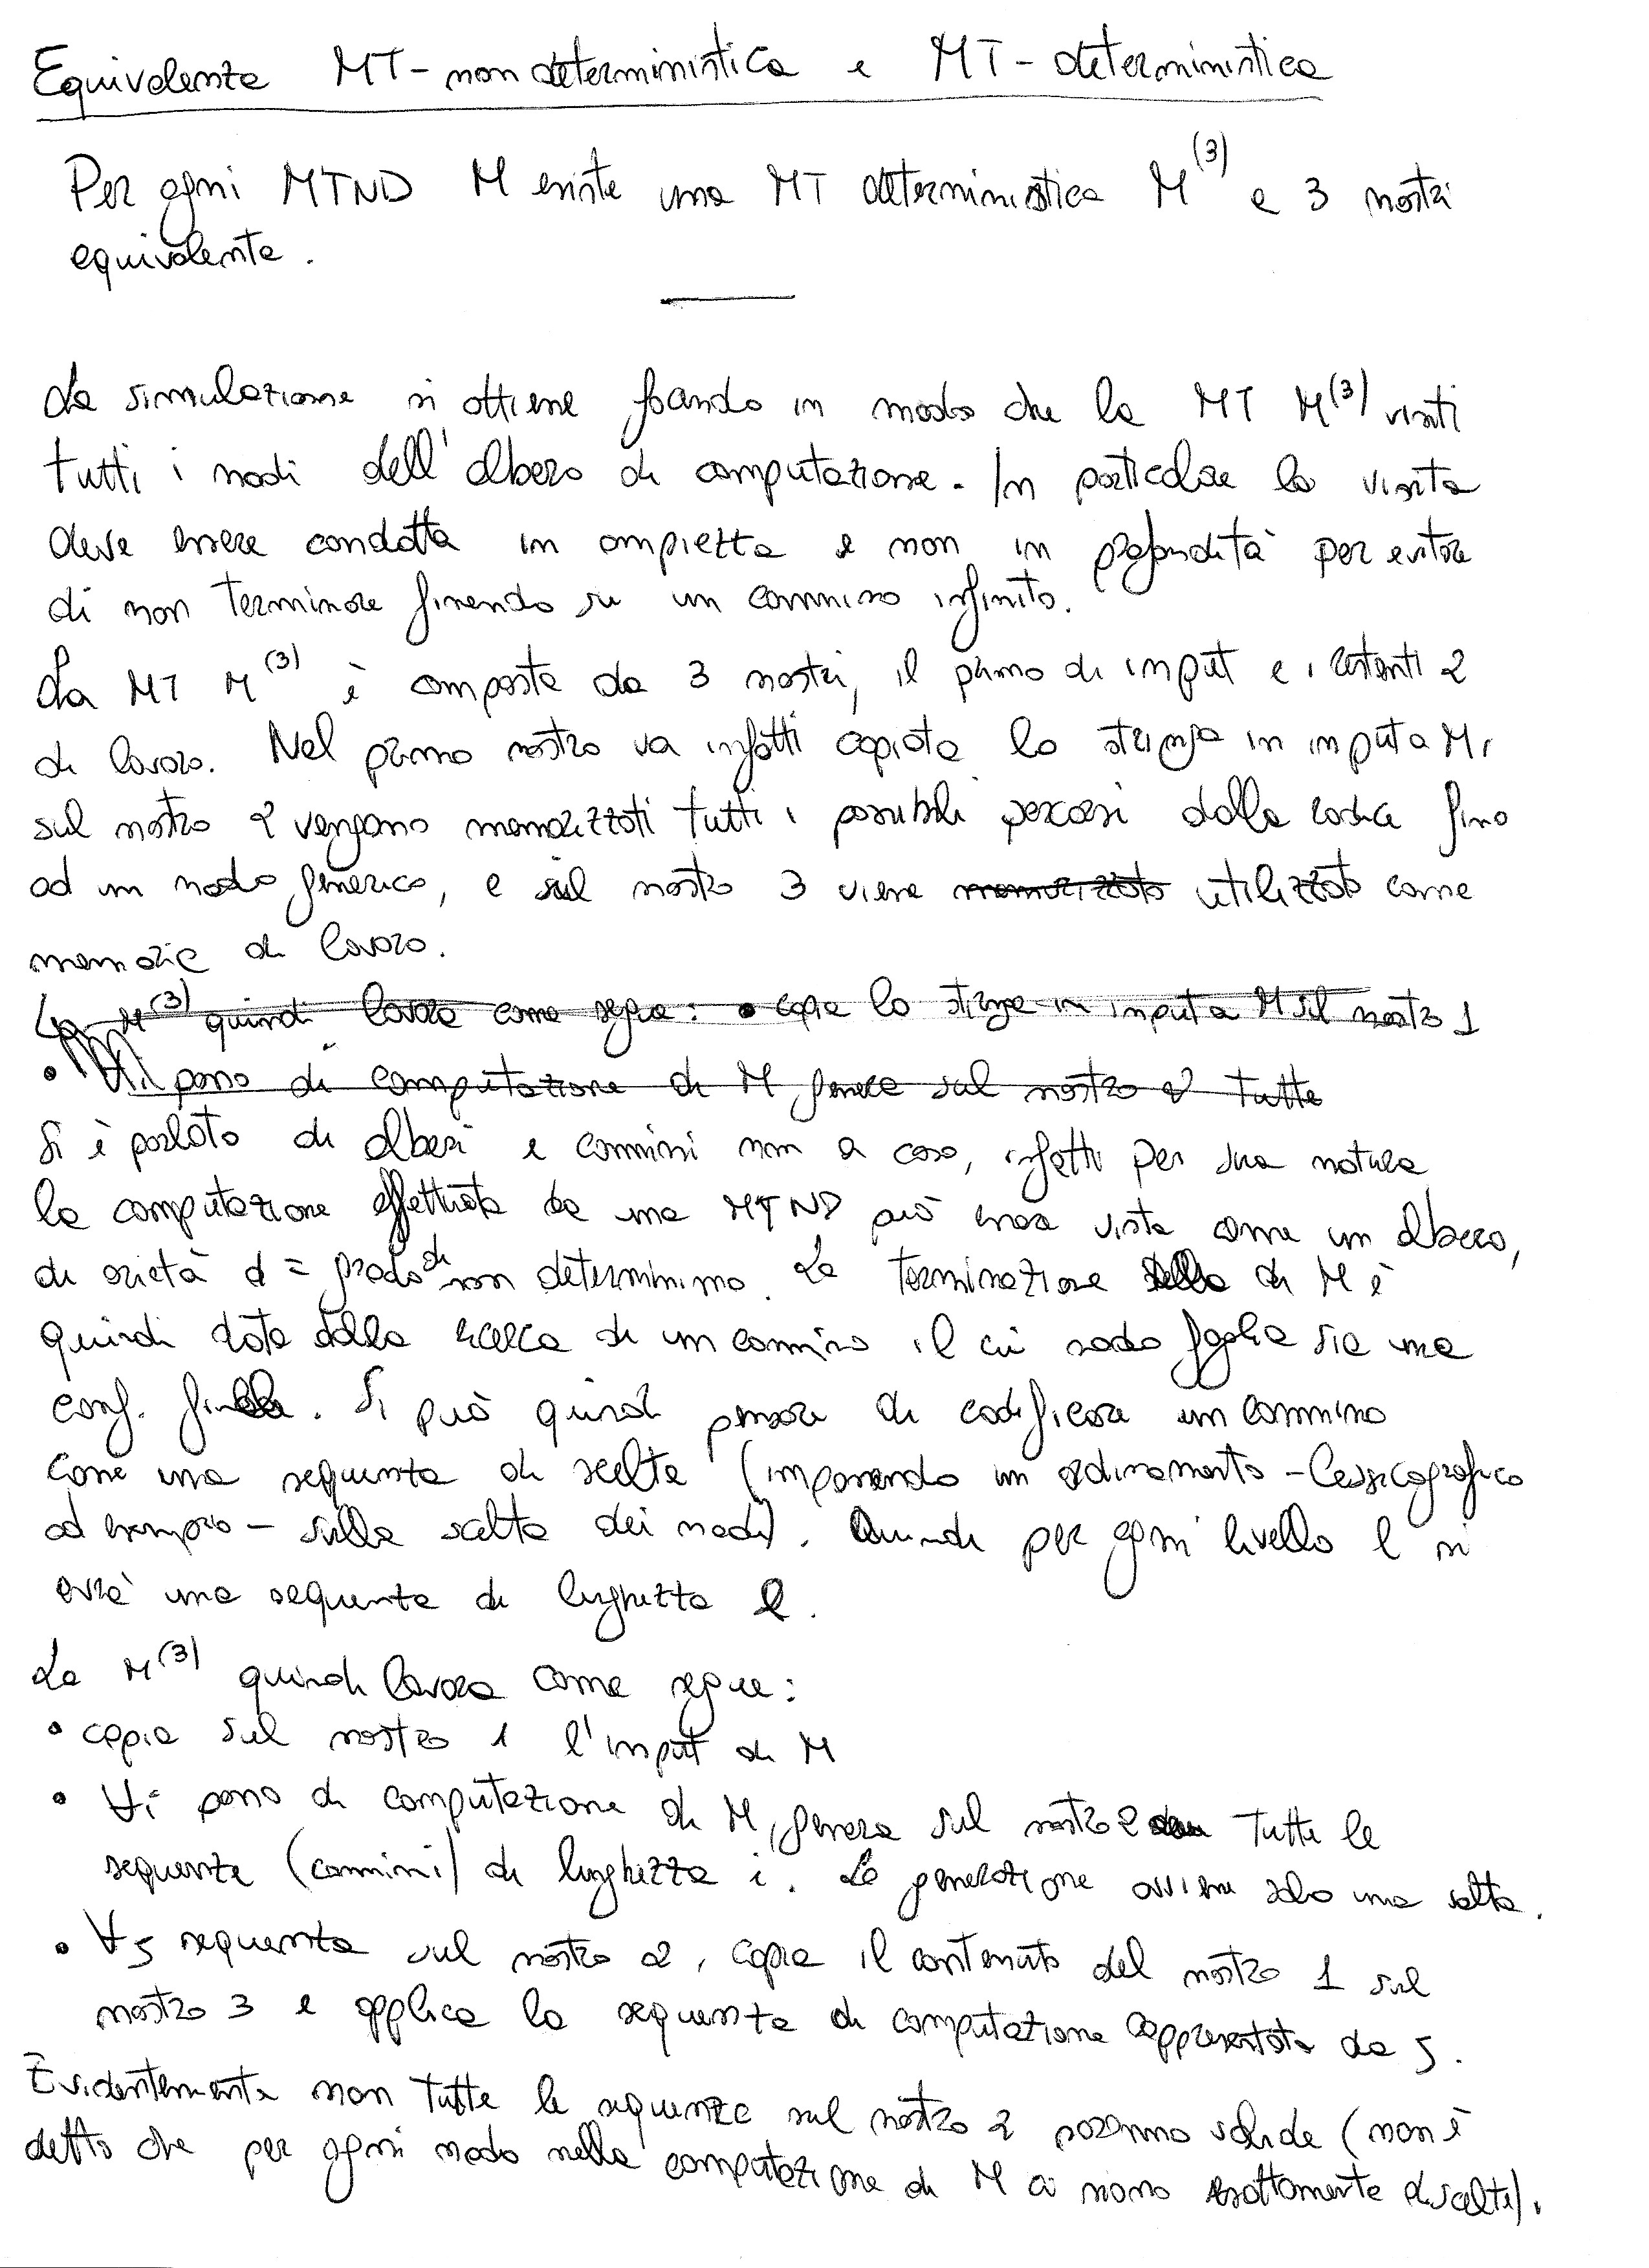 Equivalenza MT-non deterministica e MT-deterministica
Per ogni MTND M esiste una MT deterministica M^(3) a 3 nastri
equivalente.
La simulazione si ottiene facendo in modo che la MT M^(3) visiti
tutti i nodi dell'albero di computazione. In particolare la visita
deve essere condotta in ampiezza e non in profondità per evitare
di non terminare finendo su un cammino infinito.
La MT M^(3) è composta da 3 nastri, il primo di input e i restanti 2
di lavoro. Nel primo nastro va infatti copiata la stringa in input a M,
sul nastro 2 vengono memorizzati tutti i possibili percorsi dalla radice fino
ad un nodo generico, e sul nastro 3 viene memorizzato utilizzato come
memoria di lavoro.
La M^(3) quindi lavora come segue: • copia la stringa in input a M sul nastro 1
• ∀i passo di computazione di M genera sul nastro 2 tutte
Si è parlato di alberi e cammini non a caso, infatti per sua natura
la computazione effettuata da una MTND può essere vista come un albero,
di arietà d = grado di non determinismo. La terminazione della di M è
quindi data dalla ricerca di un cammino il cui nodo foglia sia una
conf. finale. Si può quindi pensare di codificare un cammino
come una sequenza di scelte (imponendo un ordinamento - lessicografico
ad esempio - sulla scelta dei nodi). Quindi per ogni livello l si
avrà una sequenza di lunghezza l.
La M^(3) quindi lavora come segue:
• copia sul nastro 1 l'input di M
• ∀i passo di computazione di M, genera sul nastro 2 tutte le
sequenze (cammini) di lunghezza i. La generazione avviene solo una volta.
• ∀s sequenza sul nastro 2, copia il contenuto del nastro 1 sul
nastro 3 e applica la sequenza di computazione rappresentata da s.
Evidentemente non tutte le sequenze sul nastro 2 saranno valide (non è
detto che per ogni nodo nella computazione di M ci siano esattamente d scelte).